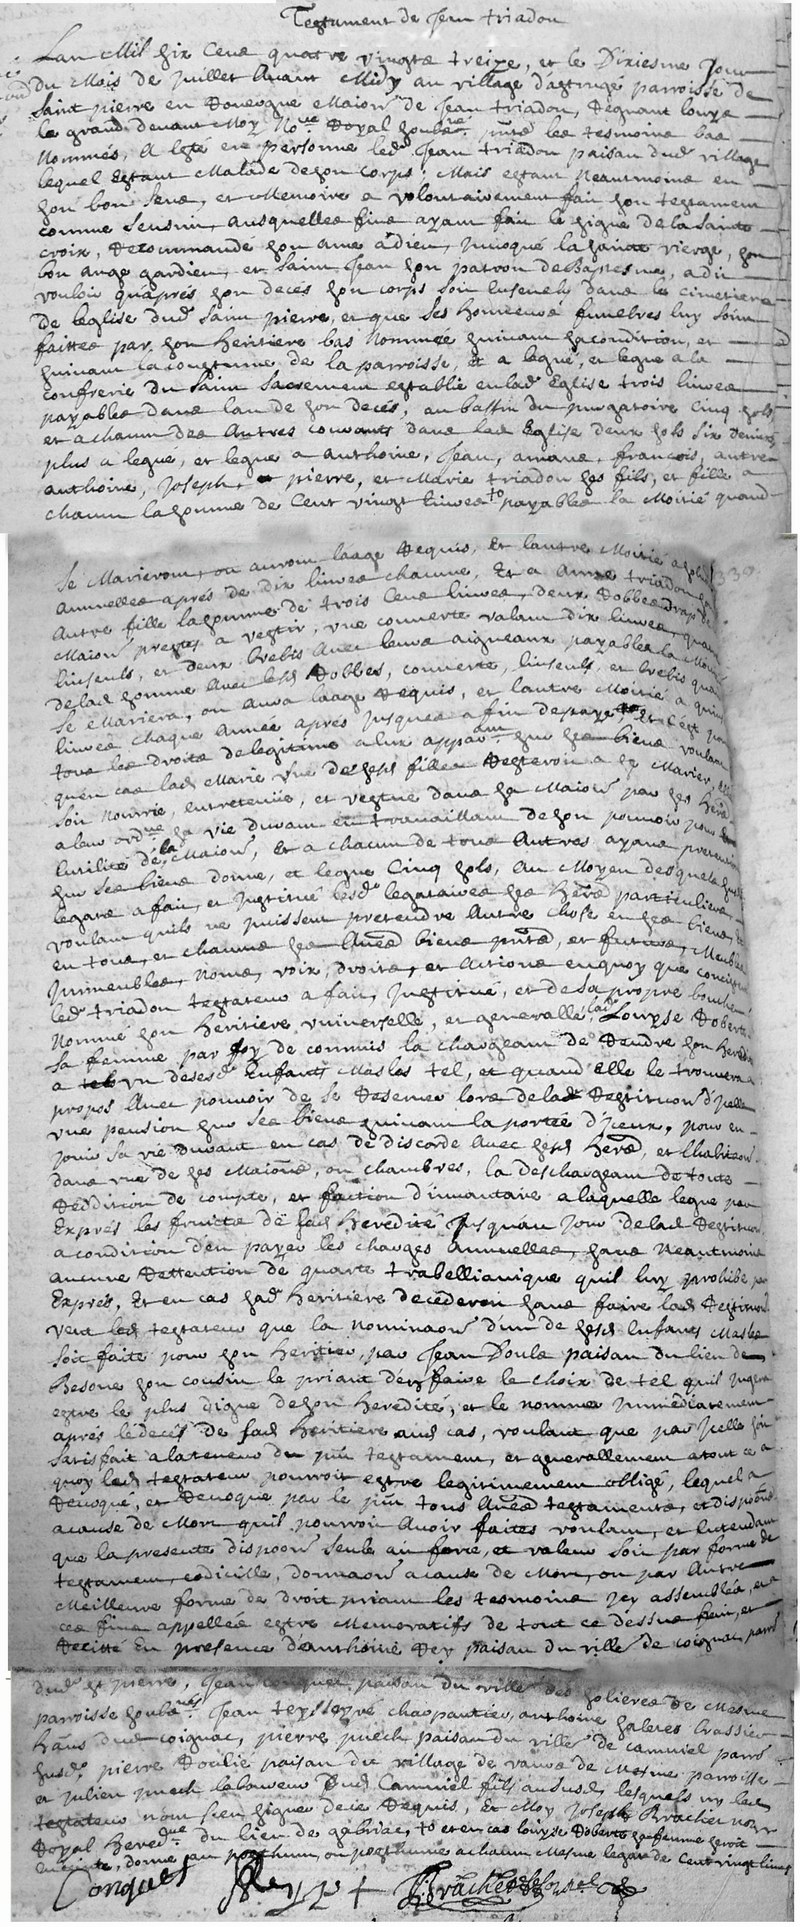 Testament de Jean triadou
Lan Mil six Cens quatre vingts treize, et le Dixiesme Jour
du Mois de Juillet Avant Midy au village parroisse de
Saint pierre en Maison de Jean triadou, Regnant Louys
le grand devant Moy No.re Royal soubz.né pnts les tesmoins bas
Nommés, A esté en personne led. Jean triadou paisan dud. village
lequel Estant Malade de son corps, Mais estant Neantmoins en
son bon sens, et Memoire a volontairement fait son testament
comme sensuit, ausquelles fins ayant fait le signe de la Sainte
croix, Recommandé son ame a dieu, Invoqué la sainte vierge, son
bon ange gardien, et Saint Jean son patron de Baptesme, a dit
vouloir quaprés son decés son corps soit Ensevely dans le cimetiere
De leglise dud. Saint pierre, et que Ses honneurs funebres luy soint
faittes par son heritiere bas Nommée suivant sa condition, et
suivant la coustume de la parroisse, Et a legué, et legue a la
confrerie du Saint Sacrement establie en lad. Eglise trois livres
payables dans lan de son decés, au bassin du purgatoire Cinq sols,
et a chacun des Autres courants dans lad. Eglise deux sols Six deniers
plus a legué, et legue a anthoine, Jean, amans, francois, autre
anthoine, Joseph, pierre, et Marie triadou ses fils, et fille a
chacun la somme de Cent vingt livres payables la Moitié quand
Se Marieront, ou auront laage Requis, Et lautre Moitié a
annuelles aprés de dix livres chacune, Et a Anne triadou son
Autre fille la somme de trois Cens livres, deux Robbes drap de
Maison prestes a vestir, une couverte valant dix livres, quatre
linseuls, et deux brebis Avec leurs aigneaux payables la Moitié
de lad. somme Avec lesd. Robbes, couverte, linseuls, et brebis quand
Se Mariera, ou aura laage Requis, et lautre Moitié a quinze
livres chaque Année aprés Jusques a fin de paye, Et c'est pour
tous les droits de legitime a eux sur ses biens voulant
quen cas lad. Marie une desd. filles Resteroit a se Marier,
soit nourrie, entretenüe, et vestue dans sa Maison par ses
a leur sa vie durant en travaillant de son pouvoir pour
lutilité de la Maison, Et a chacun de tous Autres ayans pretention
sur ses biens donne, et legue Cinq sols, Au Moyen desquels susd.
legats a fait, et Institué lesd. legataires ses particuliers
voulant quils ne puissent pretendre Autre chose en ses biens,
en tous, et chacuns ses biens pnts, et futurs, Meubles
Immeubles, Noms, voix, droits, et Actions en quoy que consistent
led. triadou testateur a fait, Institué, et de sa propre bouche
Nommé son heritiere universelle, et generalle Louyse
Sa femme par foy de commis la chargeant de Rendre son heredité
a un desesd. Enfants Masles tel, et quand elle le trouvera a
propos Avec pouvoir de se Reserver lors de lad. Restitution d'Icelle
une pension sur ses biens suivant la portée d'Iceux, pour en
jouir sa vie durant en cas de discorde Avec sesd. et lhabitaon
dans une de ses Maisons, ou chambres, la deschargeant de toute
Reddition de compte, et faction d'inventaire a laquelle legue par
Exprés les fruicts de sad. heredité Jusqu'au Jour de lad. Restitution
a condition den payer les charges Annuelles, sans Neantmoins
aucune Rettention de quarte trabellianique quil luy prohibe par
Exprés, Et en cas sad. heritiere decederoit sans faire lad. Restitution
veut led. testateur que la nominaon d'un de sesd. Enfants Masles
soit faite pour son heritier, par Jean paisan du lieu de
Besone son cousin le priant den faire le choix de tel quil jugera
estre le plus digne de son heredité, et le nommer Immediatement
aprés le decés de sad. heritiere aud. cas, voulant que par Icelle soit
Satisfait a la teneur du pnt testament, et generallement a tout ce a
quoy led. testateur pourroit estre legitimement obligé, lequel a
Revoqué, et Revoque par le pnt tous testaments, et dispoons
a cause de Mort quil pourroit Avoir faites voulant, et Entendant
que la presente dispoon Seule ait force, et valeur Soit par forme de
testament, codicille, donnaon a cause de Mort, ou par Autre
Meilleure forme de droit priant les tesmoins Icy assemblés, et a
ces fins appellés estre Memoratifs de tout ce dessus fait, et
Recitté En presence d'anthoine Rey paisan du ville de coignac parro
dud. St pierre, Jean conquet paisan du ville des solieres de Mesme
parroisse soubz.nés Jean teysseyre chaopantier, anthoine
hãns dud. coignac, pierre puech paisan du ville de cammiel parro
susd. pierre paisan du village de de Mesme parroisse
et Julien puech laboureur dud. Cammiel fils au susd. lesquels ny led.
testateur nont sceu signer de ce Requis, Et Moy Joseph Brachet nore
Royal du lieu de gabriac, et en cas louyse sa femme seroit
enceinte, donne au posthum, ou posthume a chacun Mesme legat de cent vingt livres
Conquet Rey Brachet